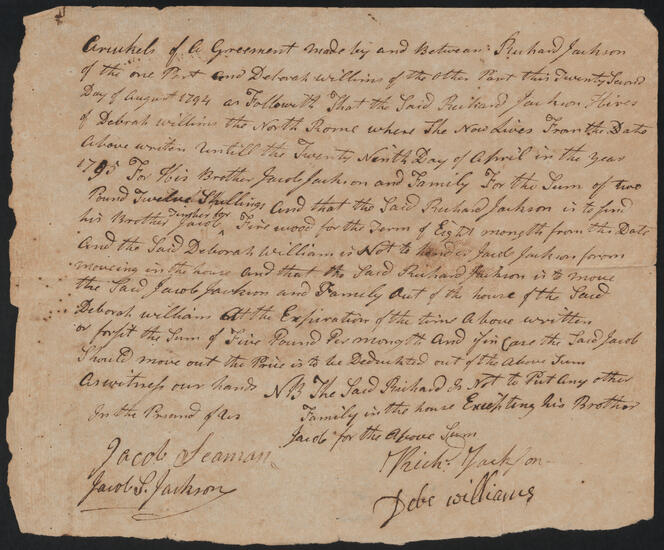 Artickels of A Greement made by and Between Richard Jackson
of the one Part and Deborah willims of the Other Part this Twenty Second
Day of August 1794 as Followith That the Said Reichard Jackson Hires
of Debrah willims the North Rome where The Now Lives From the Date
Above writen Untill the Twenty Ninth Day of April in the year
1795 For His Brother Jacob Jackson and Family For the Sum of two
Pound Twelve Shillings And that the Said Richard Jackson is to find
his Brother Jacob Fire wood for the Term of Eight mongth from this Date
And the Said Deborah William is Not to hinder Jacob Jackson forom
moveing in the house And that the Said Richard Jackson is to move
the Said Jacob Jackson and Family Out of the house of the Said
Deborah william At the Expiration of the time Above written
or forfit the Sum of Five Pound Per mongth And if in Case the Said Jacob
Should move out the Price is to be Deducted out of the Above Sum
As witness our hands N B The Said Richard Is Not to Put Any other
In the of us Family in the house Excepting his Brother
Jacob for the Above Sum
Jacob Seaman Richd Jackson
Jacob S. Jackson Debe williams